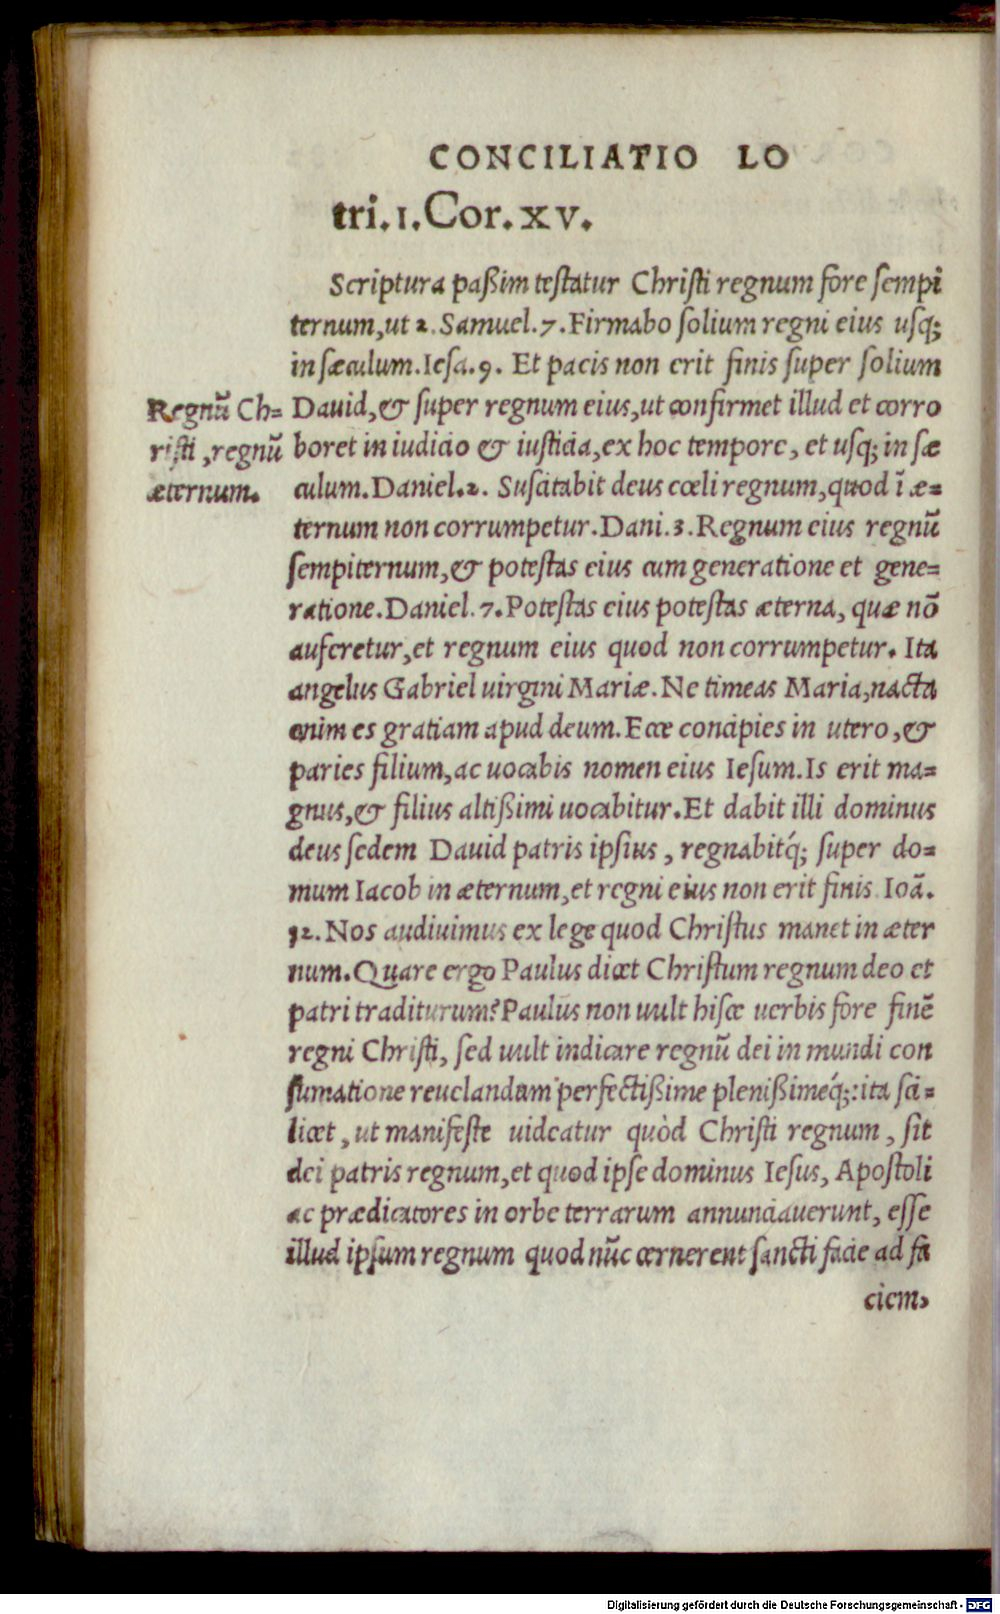 CONCILIATIO LO
tri. 1. Cor. XV.
Scriptura paßim testatur Christi regnum fore sempi
ternum, ut 2. Samuel. 7. Firmabo solium regni eius usq;
in sæculum. Iesa. 9. Et pacis non erit finis super solium
Dauid, & super regnum eius, ut confirmet illud et corro
boret in iudicio & iusticia, ex hoc tempore, et usq; in sæ
culum. Daniel. 2. Suscitabit deus cœli regnum, quod ī æ=
ternum non corrumpetur. Dani. 3. Regnum eius regnū
sempiternum, & potestas eius cum generatione et gene=
ratione. Daniel. 7. Potestas eius potestas æterna, quæ nō
auferetur, et regnum eius quod non corrumpetur. Ita
angelus Gabriel uirgini Mariæ. Ne timeas Maria, nacta
enim es gratiam apud deum. Ecce concipies in utero, &
paries filium, ac uocabis nomen eius Iesum. Is erit ma=
gnus, & filius altißimi uocabitur. Et dabit illi dominus
deus sedem Dauid patris ipsius, regnabitq́; super do=
mum Iacob in æternum, et regni eius non erit finis. Ioā.
12. Nos audiuimus ex lege quod Christus manet in æter
num. Quare ergo Paulus dicet Christum regnum deo et
patri traditurum? Paulus non uult hisce uerbis fore finē
regni Christi, sed uult indicare regnū dei in mundi con
sumatione reuelandum perfectißime plenißimeq́;: ita sci=
licet, ut manifeste uideatur quòd Christi regnum, sit
dei patris regnum, et quod ipse dominus Iesus, Apostoli
ac prædicatores in orbe terrarum annunciauerunt, esse
illud ipsum regnum quod nūc cernerent sancti facie ad fa
ciem,
Regnū Ch=
risti, regnū
æternum.
Digitalisierung gefördert durch die Deutsche Forschungsgemeinschaft - DFG